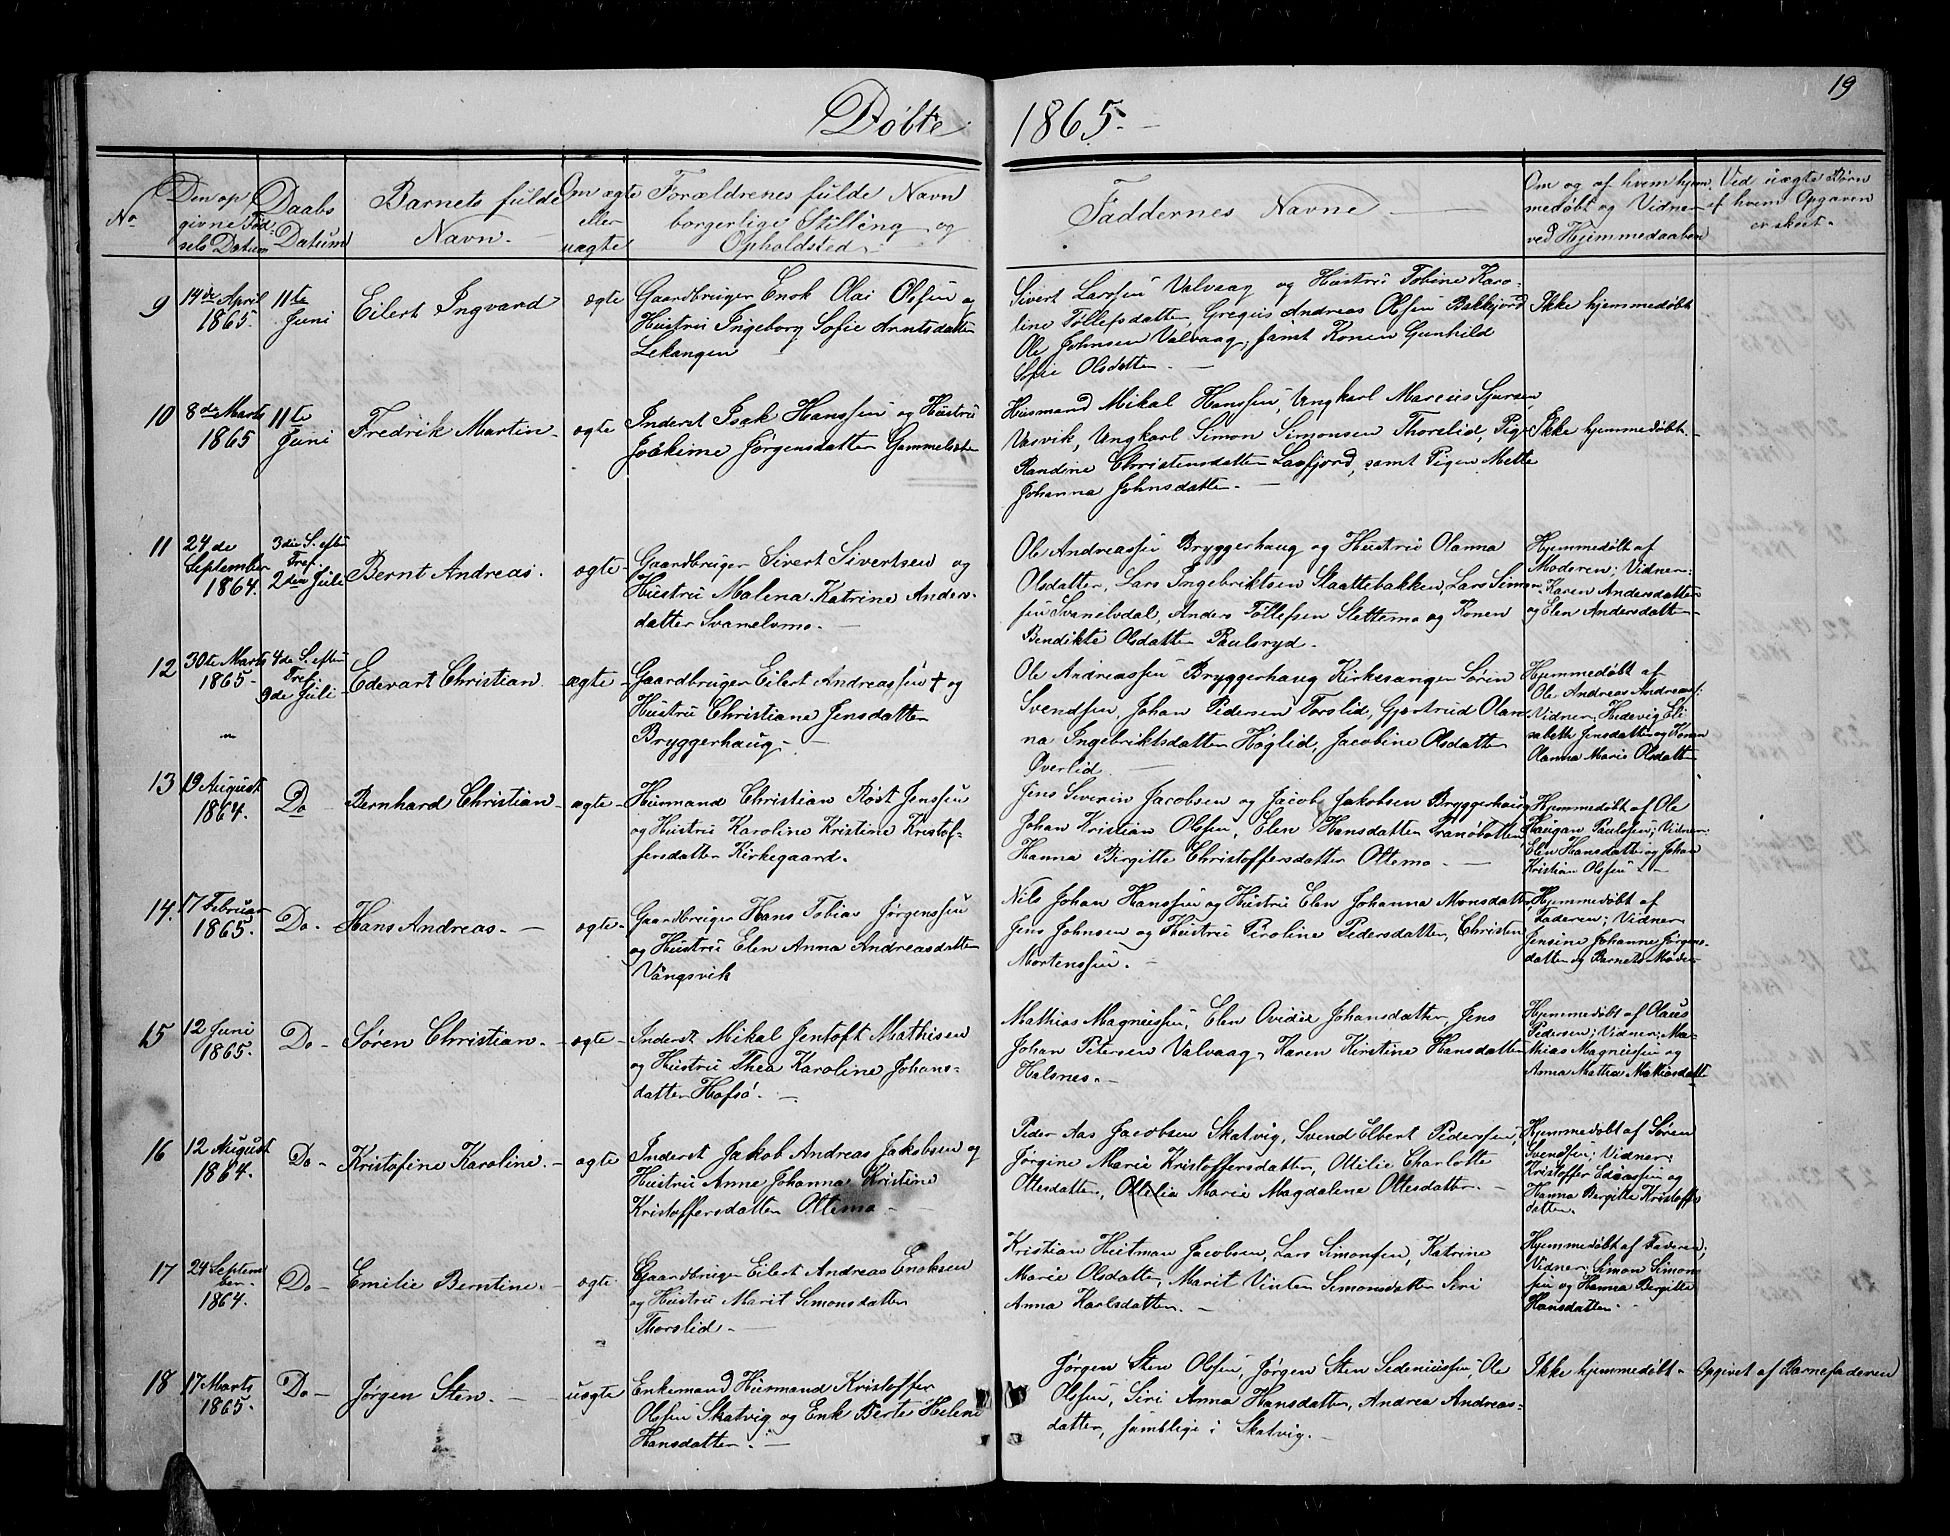 19
Døbte 1865.
No
Den op
givne Fød
sels Datum
Daabs
Datum
Barnets fulde
Navn.
Om ægte
eller
uægte
Forældrenes fulde Navn
borgerlige Stilling og
Opholdsted.
Faddernes Navne
Om og af hvem hjem
medøbt og Vidner
ved Hjemmedaaben
Ved uægte Børn
af hvem Opgaven
er skeet.
9
14de April
1865.
11te
Juni
Eilert Ingvard
ægte
Gaardbruger Enok Olai Olssen og
Hustru Ingeborg Sofie Arntsdatter
Lekangen
Sivert Larssen Valvaag og Hustru Tobine Karo-
line Tollefsdatter, Gregus Andreas Olssen Bakkjord
Ole Johnsen Valvaag, samt Konen Gunhild
Sofie Olsdatter.
Ikke hjemmedøbt
10
8de Marts
1865
11te
Juni
Fredrik Martin
ægte
Inderst Isak Hanssen og Hustru
Joakime Jørgensdatter
Husmand Mikal Hanssen, Ungkarl Marcus Sjursen
Vasvik, Ungkarl Simon Simonsen Thorslid, Pige
Randine Christensdatter Laxfjord, samt Pigen Mette
Johanna Johnsdatter.
Ikke hjemmedøbt.
11
24de
September
1864.
3die S. efter
Tref.
2den Juli
Bernt Andreas.
ægte
Gaardbruger Sivert Sivertsen og
Hustru Malena Katrine Anders-
datter Svanelvmo.
Ole Andreassen Bryggerhaug og Hustru Olanna
Olsdatter, Lars Ingebriktsen Slaattebakken, Lars Simon-
sen Svanelvdal, Anders Tollefsen Slettemo og Konen
Bendikte Olsdatter Paulsryd.
Hjemmedøbt af
Moderen; Vidner:
Karen Andersdatter
og Elen Andersdatter
12
30te Marts
1865.
4de S. efter
Tref.
9de Juli
Edevart Christian
ægte
Gaardbruger Eilert Andreassen † og
Hustru Christiane Jensdatter
Bryggerhaug.
Ole Andreassen Bryggerhaug Kirkesanger Søren
Svendsen, Johan Pedersen Torslid, Gjertrud Olan-
na Ingebriktsdatter Høglid, Jacobine Olsdatter
Øverlid.
Hjemmedøbt af
Ole Andreas Andreass:
Vidner: Hedevig Eli-
sabeth Jensdatter og Konen
Olanna Marie Olsdatter
13
19 August
1864.
Do
Bernhard Christian
ægte
Husmand Christian Røst Jenssen
og Hustru Karoline Kristine Kristof-
fersdatter Kirkegaard.
Jens Severin Jacobsen og Jacob Jakobsen Bryggerhaug
Johan Kristian Olssen, Elen Hansdatter Tranøbotten,
Hanna Birgitte Christoffersdatter Ottemo.
Hjemmedøbt af Ole
Haugan Paulssen; Vidner:
Elen Hansdatter og Johan
Kristian Olssen
14.
17 Februar
1865.
Do.
Hans Andreas.
ægte
Gaardbruger Hans Tobias Jørgenssen
og Hustru Elen Anna Andreasdatter
Vangsvik
Nils Johan Hanssen og Hustru Elen Johanna Monsdatter
Jens Johnsen og Hustru Peroline Pedersdatter, Christen
Mortenssen.
Hjemmedøbt af
Faderen; Vidner
Jensine Johanne Jørgens-
datter og Barnets Moder
15
12 Juni
1865.
Do
Søren Christian.
ægte
Inderst Mikal Jentoft Mathisen
og Hustru Thea Karoline Johans-
datter Hofsø.
Mathias Magnussen, Elen Ovidie Johansdatter, Jens
Johan Petersen Valvaag, Karen Kirstine Hansdatter
Halsnes.
Hjemmedøbt af Olaus
Pedersen; Vidner: Ma-
thias Magnussen og
Anna Mattea Mathiasdatt
16
12 August
1864.
Do
Kristofine Karoline.
ægte
Inderst Jakob Andreas Jakobsen og
Hustru Anne Johanna Kristine
Kristoffersdatter Ottemo
Peder Aas Jacobsen Skatvig, Svend Elbert Pedersen,
Jørgine Marie Kristoffersdatter, Ottilie Charlotte
Ottesdatter, Ottelia Marie Magdalina Ottesdatter.
Hjemmedøbt af Søren
Svendsen; Vidner:
Kristoffer Edvassen og
Hanna Bergitte Kristoffs
datter.
17
24 Septem
ber
1864.
Do
Emilie Berntine.
ægte
Gaardbruger Eilert Andreas Enoksen
og Hustru Marit Simonsdatter
Thorslid.
Kristian Heitman Jacobsen, Lars Simonsen, Katrine
Marie Olsdatter, Marit Vinten Simonsdatter Siri
Anna Karlsdatter.
Hjemmedøbt af Faderen;
Vidner: Simon Simon-
sen og Hanna Bergitte
Hansdatter.
18
17 Marts
1865.
Do
Jørgen Sten.
uægte
Enkemand Husmand Kristoffer
Olssen Skatvig og Enk Berte Helene
Hansdatter.
Jørgen Sten Olssen, Jørgen Sten Sedeniussen, Ole
Olssen, Siri Anna Hansdatter, Andrea Andreas-
datter, samtlige i Skatvig.
Ikke hjemmedøbt
Opgivet af Barnefaderen